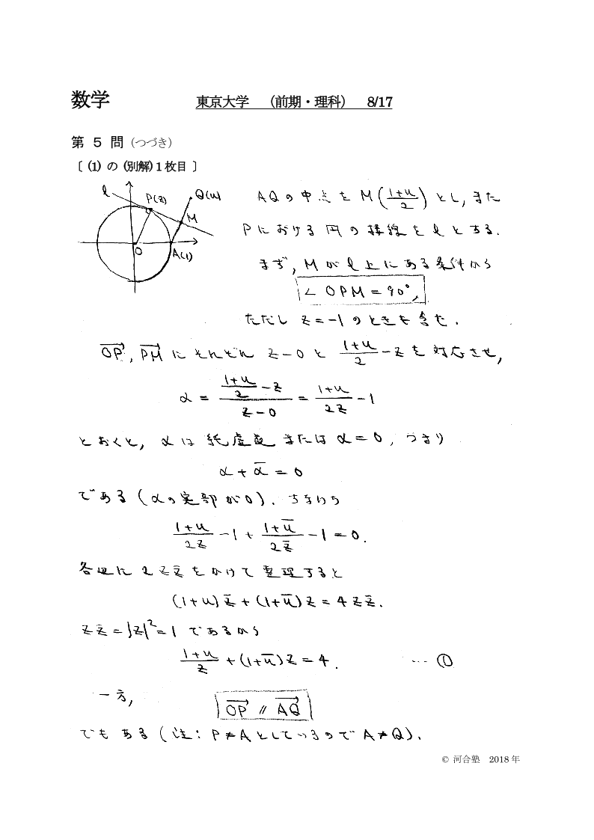 数学 東京大学 (前期・理科) 8/17
第 5 問 (つづき)
〔 (1) の (別解) 1 枚目 〕
l P(z) Q(u) M O A(1)
AQの中点を M((1+u)/2) とし, また
Pにおける円の接線をlとする.
まず, Mがl上にある条件から
∠OPM=90°,
ただし z=-1 のときも含む.
→OP, →PM にそれぞれ z-0 と (1+u)/2 - z を対応させ,
α = ((1+u)/2 - z)/(z-0) = (1+u)/(2z) - 1
とおくと, αは純虚数またはα=0, つまり
α+ᾱ=0
である (αの実部が0). すなわち
(1+u)/(2z) - 1 + (1+ū)/(2z̄) - 1 = 0.
各辺に 2zz̄ をかけて整理すると
(1+u)z̄+(1+ū)z=4zz̄.
zz̄=|z|²=1 であるから
(1+u)/z + (1+ū)z = 4. … ①
一方, →OP // →AQ
でもある (注: P≠Aとしているので A≠Q).
© 河合塾 2018 年